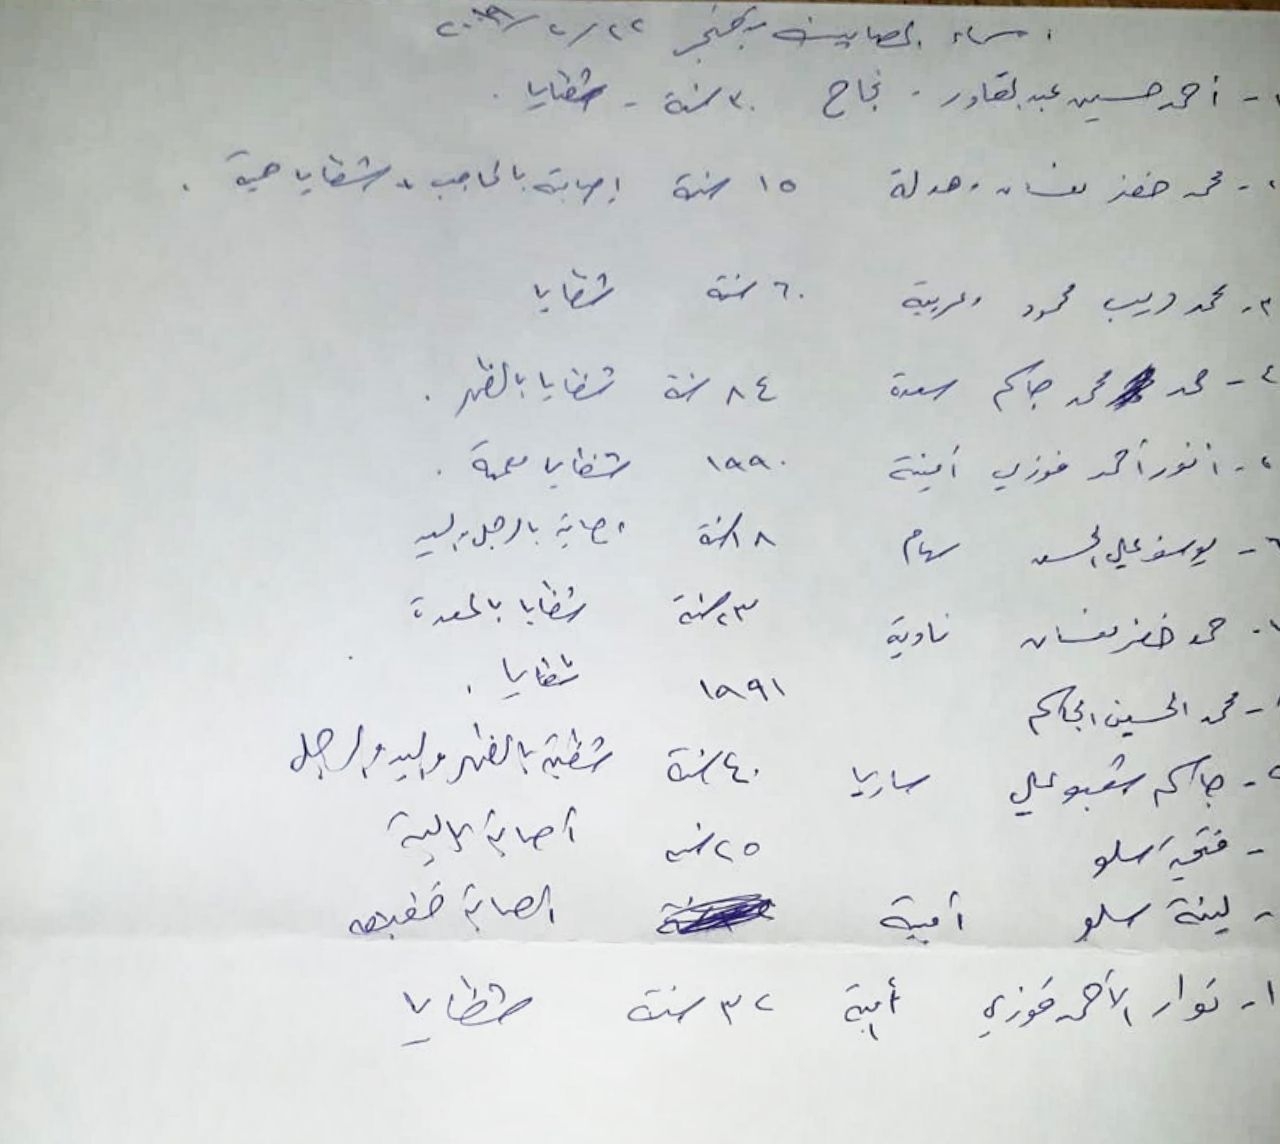 اسماء المصابين بتفجير ٢٢/٢/٢٠١٩
١- أحمد حسين عبد القادر - نجاح ٣٠ سنة - شظايا.
٢- محمد خضر وهدلة ١٥ سنة إصابة بالحاجب + شظايا.
٣- محمد ديب محمود وعربية ٦٠ سنة شظايا
٤- محمد جاكم سعدة ٨٤ سنة شظايا بالظهر.
٥- أنور أحمد فوزي أمينة ١٩٩٠ شظايا.
٦- يوسف علي الحسن سهام ١٨ سنة اصابة بالرجل واليد
٧- خضر نادية ٢٣ سنة شظايا بالمعدة
٨- محمد الحسين الجاكم ١٩٩١ شظايا.
٩- جاكم شعبو علي ساريا ٤٠ سنة شظية بالظهر واليد والرجل
- فتحية سلو ٢٥ سنه أصابة
- لينة سلو أمينة اصابة خفيفة
١- نوار الأحمد فوزي أمينة ٣٢ سنة شظايا